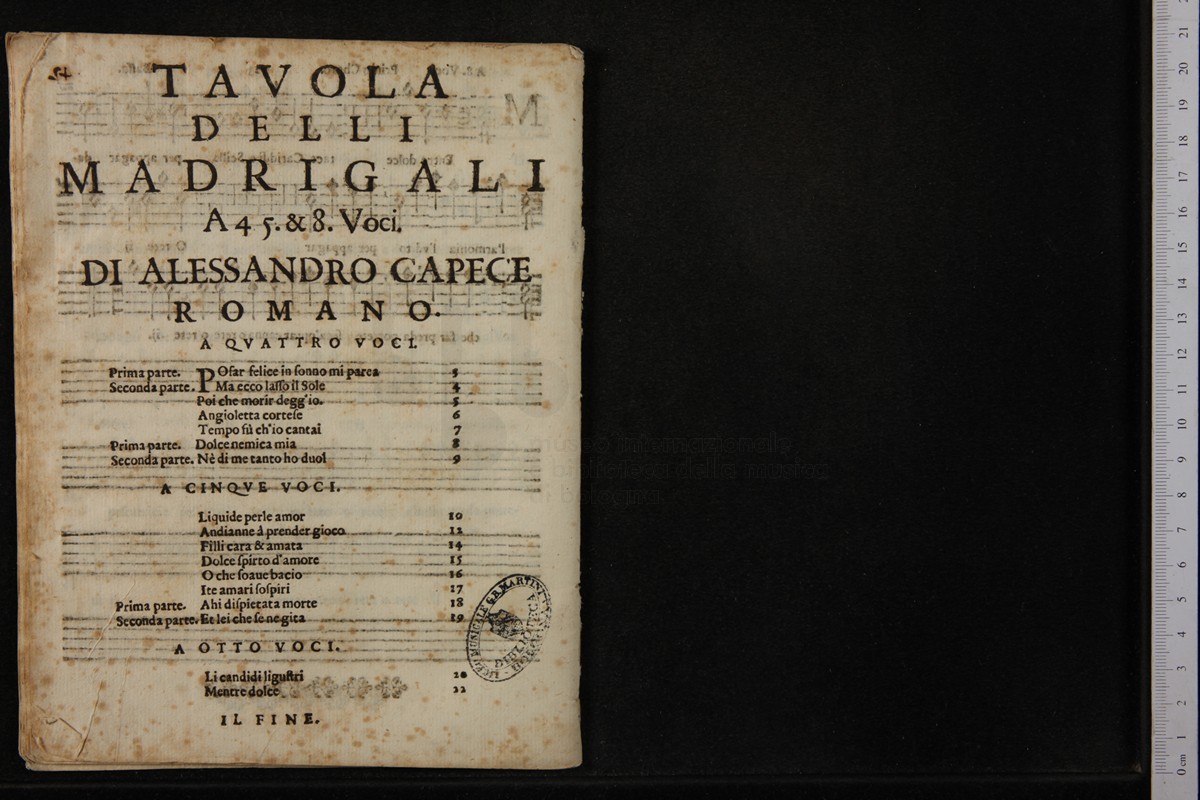 TAVOLA
DELLI
MADRIGALI
A 4 5. & 8. Voci.
DI ALESSANDRO CAPECE
ROMANO.
A QVATTRO VOCI.
Prima parte. POſar felice in ſonno mi parea 5
Seconda parte. Ma ecco laſſo il Sole 4
Poi che morir degg'io. 5
Angioletta corteſe 6
Tempo fù ch'io cantai 7
Prima parte. Dolce nemica mia 8
Seconda parte. Nè di me tanto ho duol 9
A CINQVE VOCI.
Liquide perle amor 10
Andianne à prender gioco 12
Filli cara & amata 14
Dolce ſpirto d'amore 15
O che ſoaue bacio 16
Ite amari ſoſpiri 17
Prima parte. Ahi diſpietata morte 18
Seconda parte. Et lei che ſe ne gita 19
A OTTO VOCI.
Li candidi liguſtri 20
Mentre dolce 22
IL FINE.
LICEO MUSICALE G.B. MARTINI
BIBLIOTECA